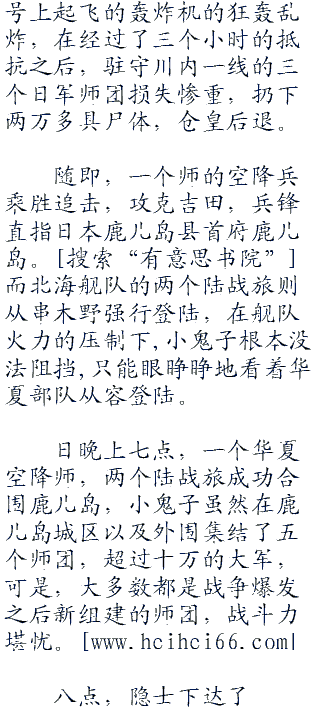 号上起飞的轰炸机的狂轰乱
炸，在经过了三个小时的抵
抗之后，驻守川内一线的三
个日军师团损失惨重，扔下
两万多具尸体，仓皇后退。
随即，一个师的空降兵
乘胜追击，攻克吉田，兵锋
直指日本鹿儿岛县首府鹿儿
岛。[搜索“有意思书院”]
而北海舰队的两个陆战旅则
从串木野强行登陆，在舰队
火力的压制下，小鬼子根本没
法阻挡，只能眼睁睁地看着华
夏部队从容登陆。
日晚上七点，一个华夏
空降师，两个陆战旅成功合
围鹿儿岛，小鬼子虽然在鹿
儿岛城区以及外围集结了五
个师团，超过十万的大军，
可是，大多数都是战争爆发
之后新组建的师团，战斗力
堪忧。[www.hcihci66.com|
八点，隐士下达了